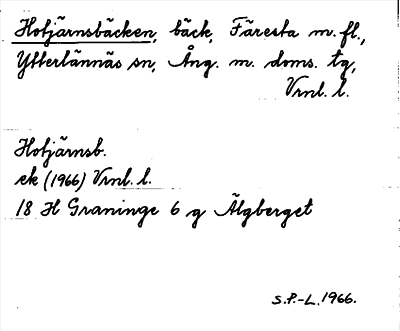 Hotjärnsbäcken, bäck, Färesta m. fl.,
Ytterlännäs sn, Ång. m. doms. tg,
Vrnl. l.
Hotjärnsb.
ek (1966) Vrnl. l.
18 H Graninge 6 g Älgberget
S.P.-L. 1966.